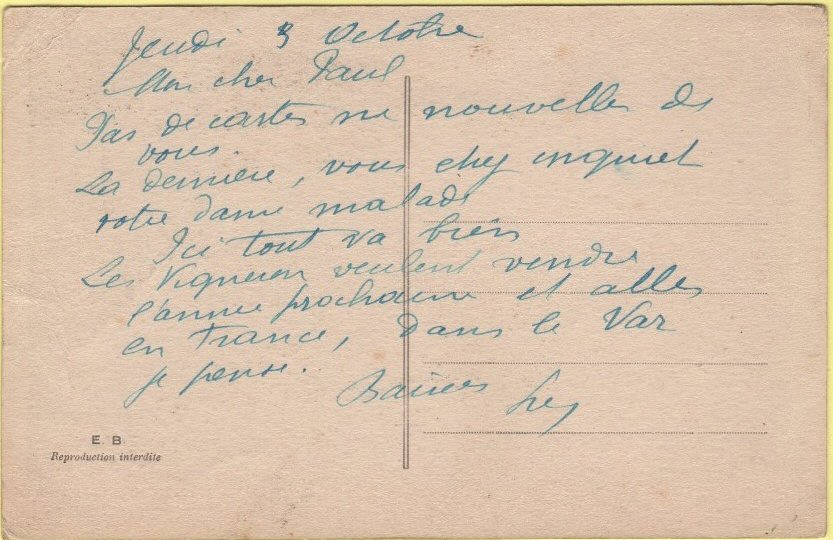 Jeudi 3 Octobre
Mon cher Paul
Pas de cartes ne nouvelles de
vous.
La dernière, vous chez inquiet
votre dame malade
Ici tout va bien
Les Vigneron veulent vendre
l'année prochaine et aller
en France, dans le Var
je pense.
Baisers
E. B
Reproduction interdite